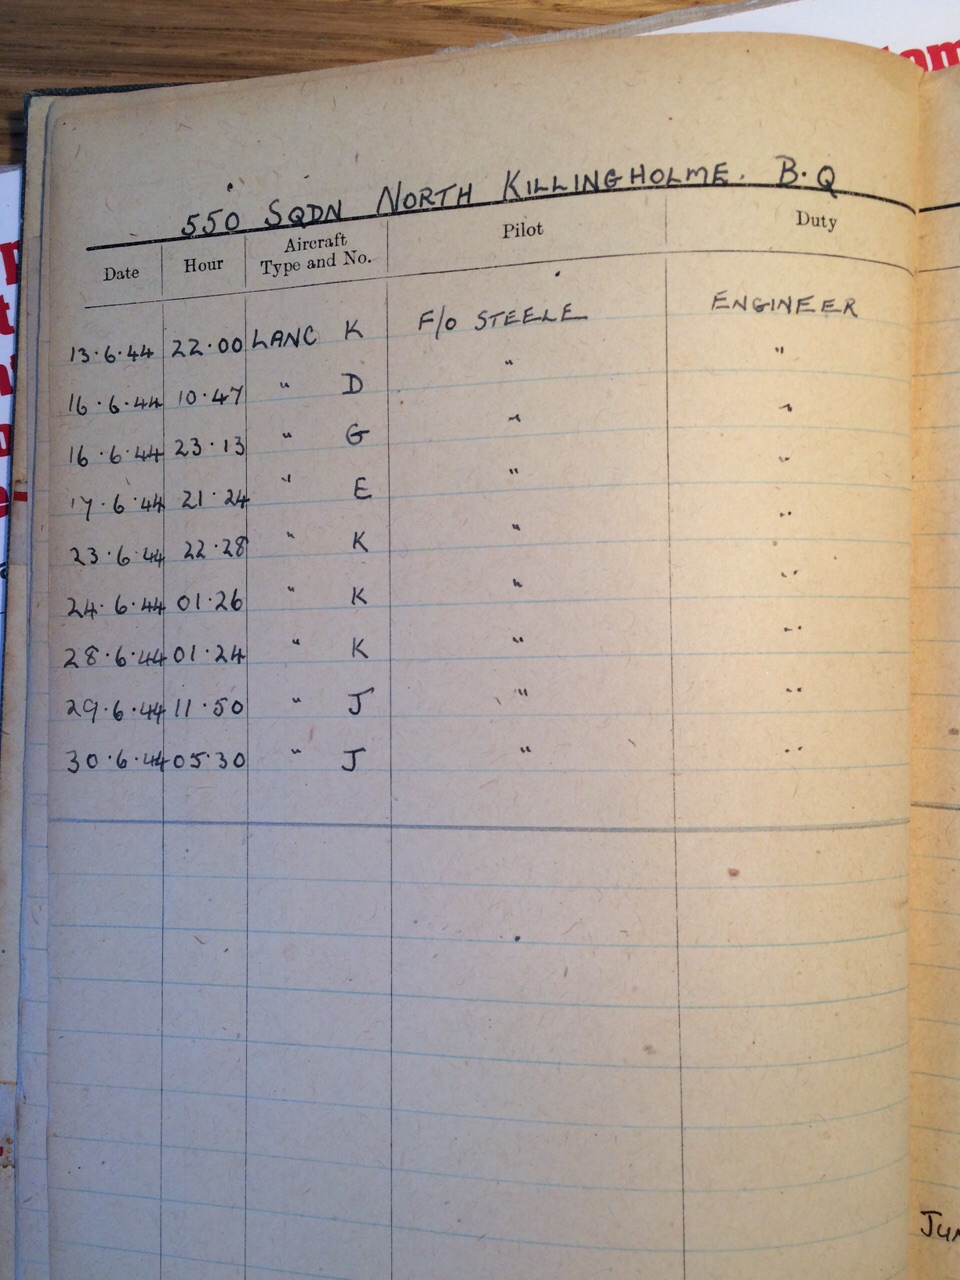 550 SQDN NORTH KILLINGHOLME. B.Q
Date Hour Aircraft Type and No. Pilot Duty
13.6.44 22.00 LANC K F/O STEELE ENGINEER
16.6.44 10.47 " D " "
16.6.44 23.13 " G " "
17.6.44 21.24 " E " "
23.6.44 22.28 " K " "
24.6.44 01.26 " K " "
28.6.44 01.24 " K " "
29.6.44 11.50 " J " "
30.6.44 05.30 " J " "